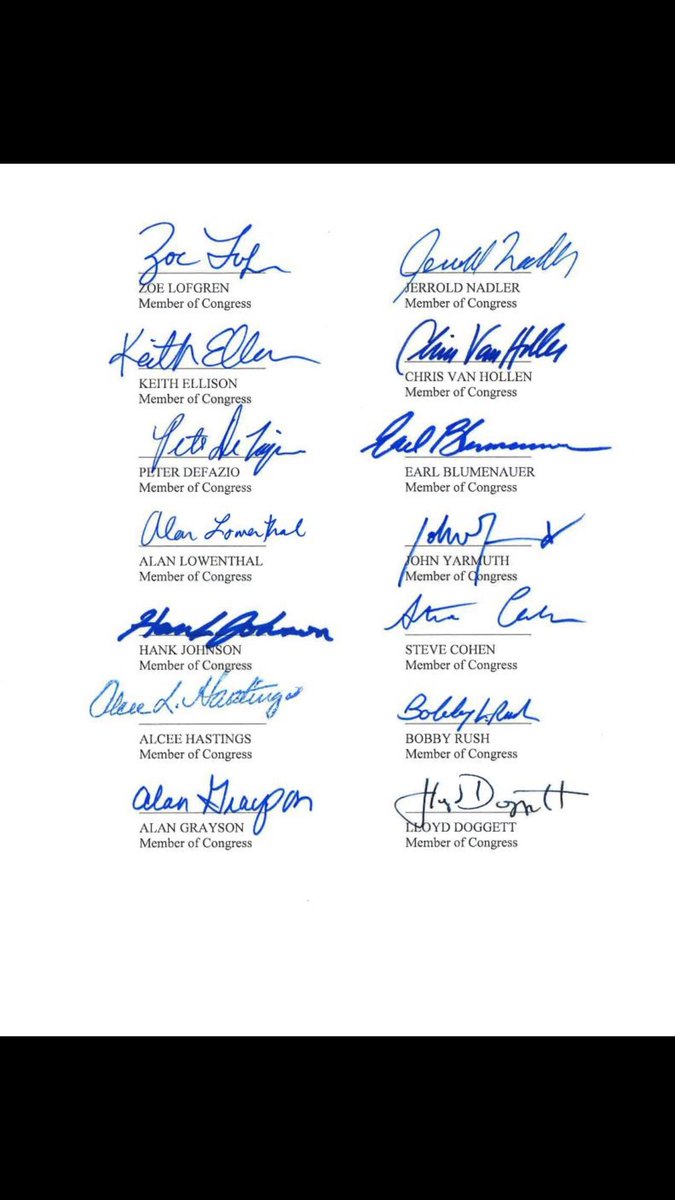 Zoe Lofgren
Jerrold Nadler
ZOE LOFGREN
JERROLD NADLER
Member of Congress
Member of Congress
Keith Ellison
Chris Van Hollen
KEITH ELLISON
CHRIS VAN HOLLEN
Member of Congress
Member of Congress
Pete DeFazio
Earl Blumenauer
PETER DEFAZIO
EARL BLUMENAUER
Member of Congress
Member of Congress
Alan Lowenthal
John
ALAN LOWENTHAL
JOHN YARMUTH
Member of Congress
Member of Congress
Hank Johnson
Steve Cohen
HANK JOHNSON
STEVE COHEN
Member of Congress
Member of Congress
Alcee L. Hastings
Bobby L. Rush
ALCEE HASTINGS
BOBBY RUSH
Member of Congress
Member of Congress
Alan Grayson
Lloyd Doggett
ALAN GRAYSON
LLOYD DOGGETT
Member of Congress
Member of Congress